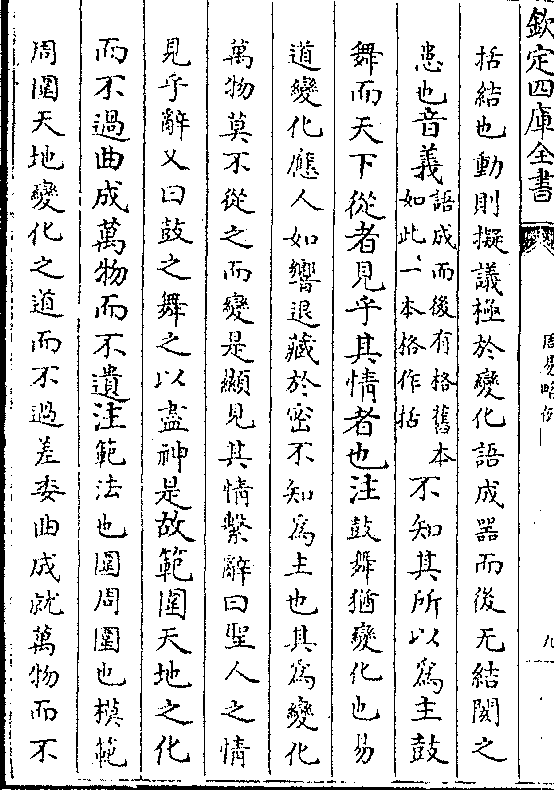 欽定四庫全書
周易略例
九
括結也動則擬議極於變化語成器而後无結閡之
患也音義語成而後有格舊本
如此一本格作括不知其所以為主鼓
舞而天下從者見乎其情者也注鼓舞猶變化也易
道變化應人如響退藏於密不知為主也其為變化
萬物莫不從之而變是顯見其情繫辭曰聖人之情
見乎辭又曰鼓之舞之以盡神是故範圍天地之化
而不過曲成萬物而不遺注範法也圍周圍也模範
周圍天地變化之道而不過差委曲成就萬物而不